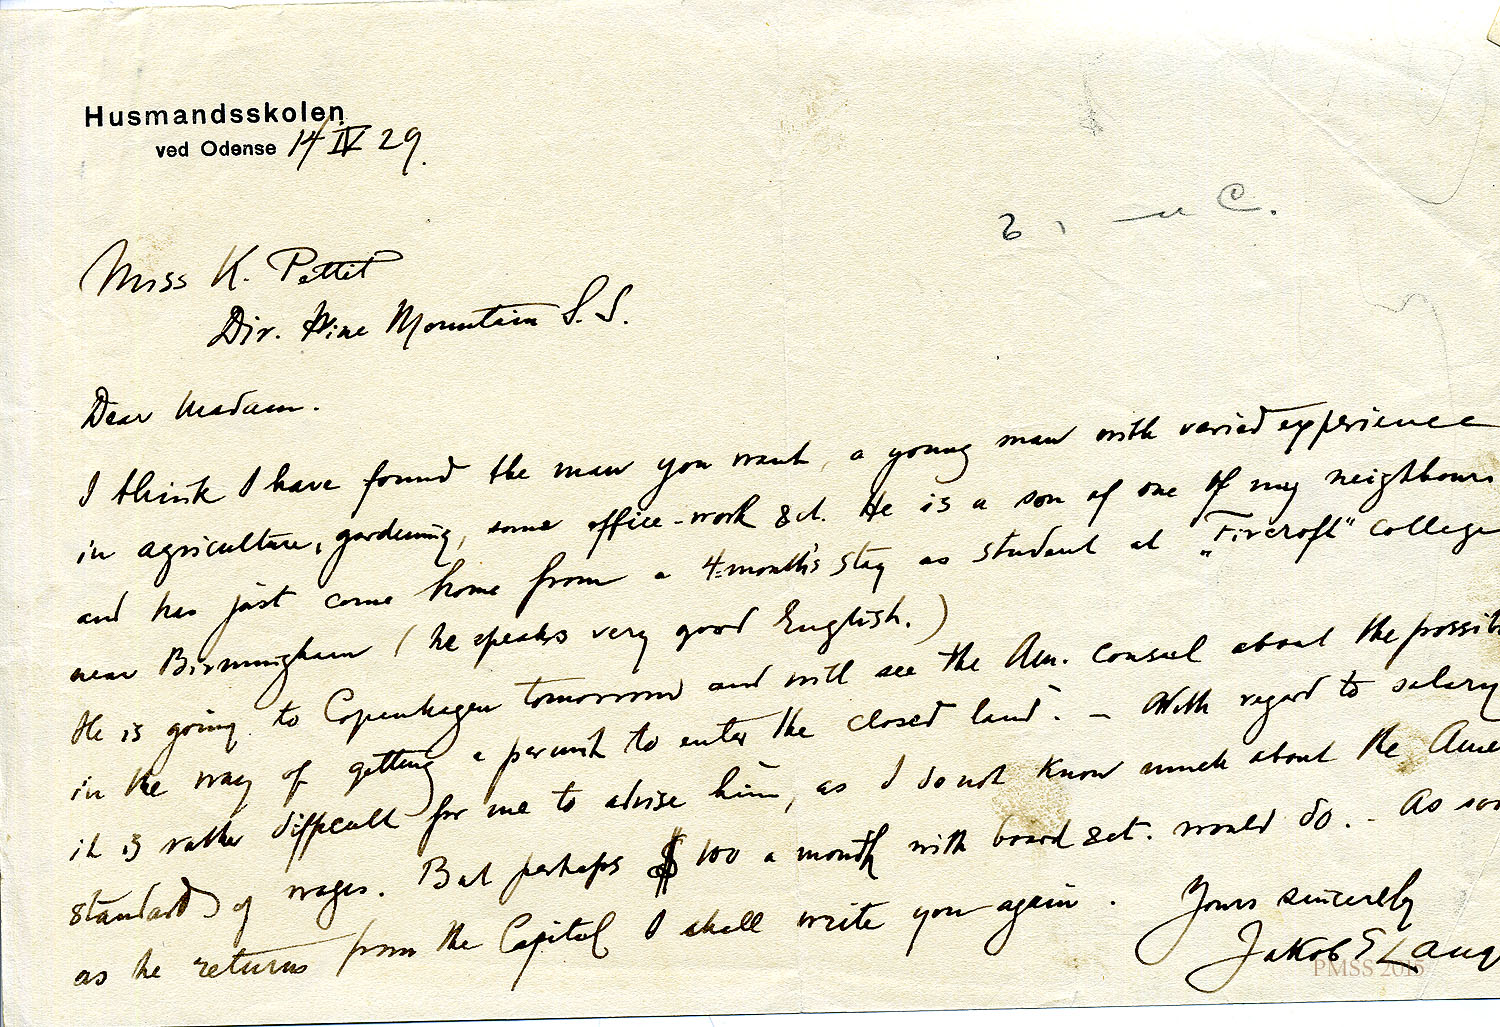 Husmandsskolen
ved Odense 14 IV 29.
Miss K. Pettit
Dir. Pine Mountain S. S.
Dear Madam.
I think I have found the man you want, a young man with varied experience
in agriculture, gardening, some office-work &ct. He is a son of one of my neighbours
and has just come home from a 4-month's stay as student at „Fircroft" College
near Birmingham (he speaks very good English.)
He is going to Copenhagen tomorrow and will see the Am. Consul about the possib
in the way of getting a permit to enter the closed land. – With regard to salary
it is rather difficult for me to advise him, as I do not know much about the Ame
standard of wages. But perhaps $ 100 a month with board &ct. would do. – As soo
as he returns from the Capital I shall write you again. Yours sincerely
Jakob E Lang
PMSS 2015